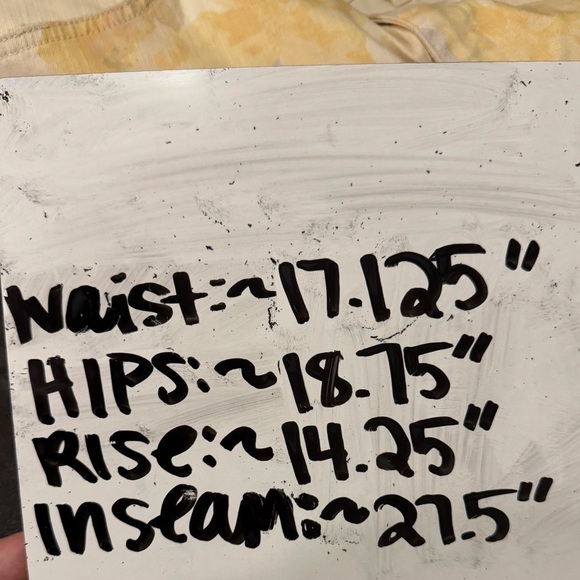 Waist:~17.125"
HIPS:~18.75"
RISe:~14.25"
Inseam:~27.5"